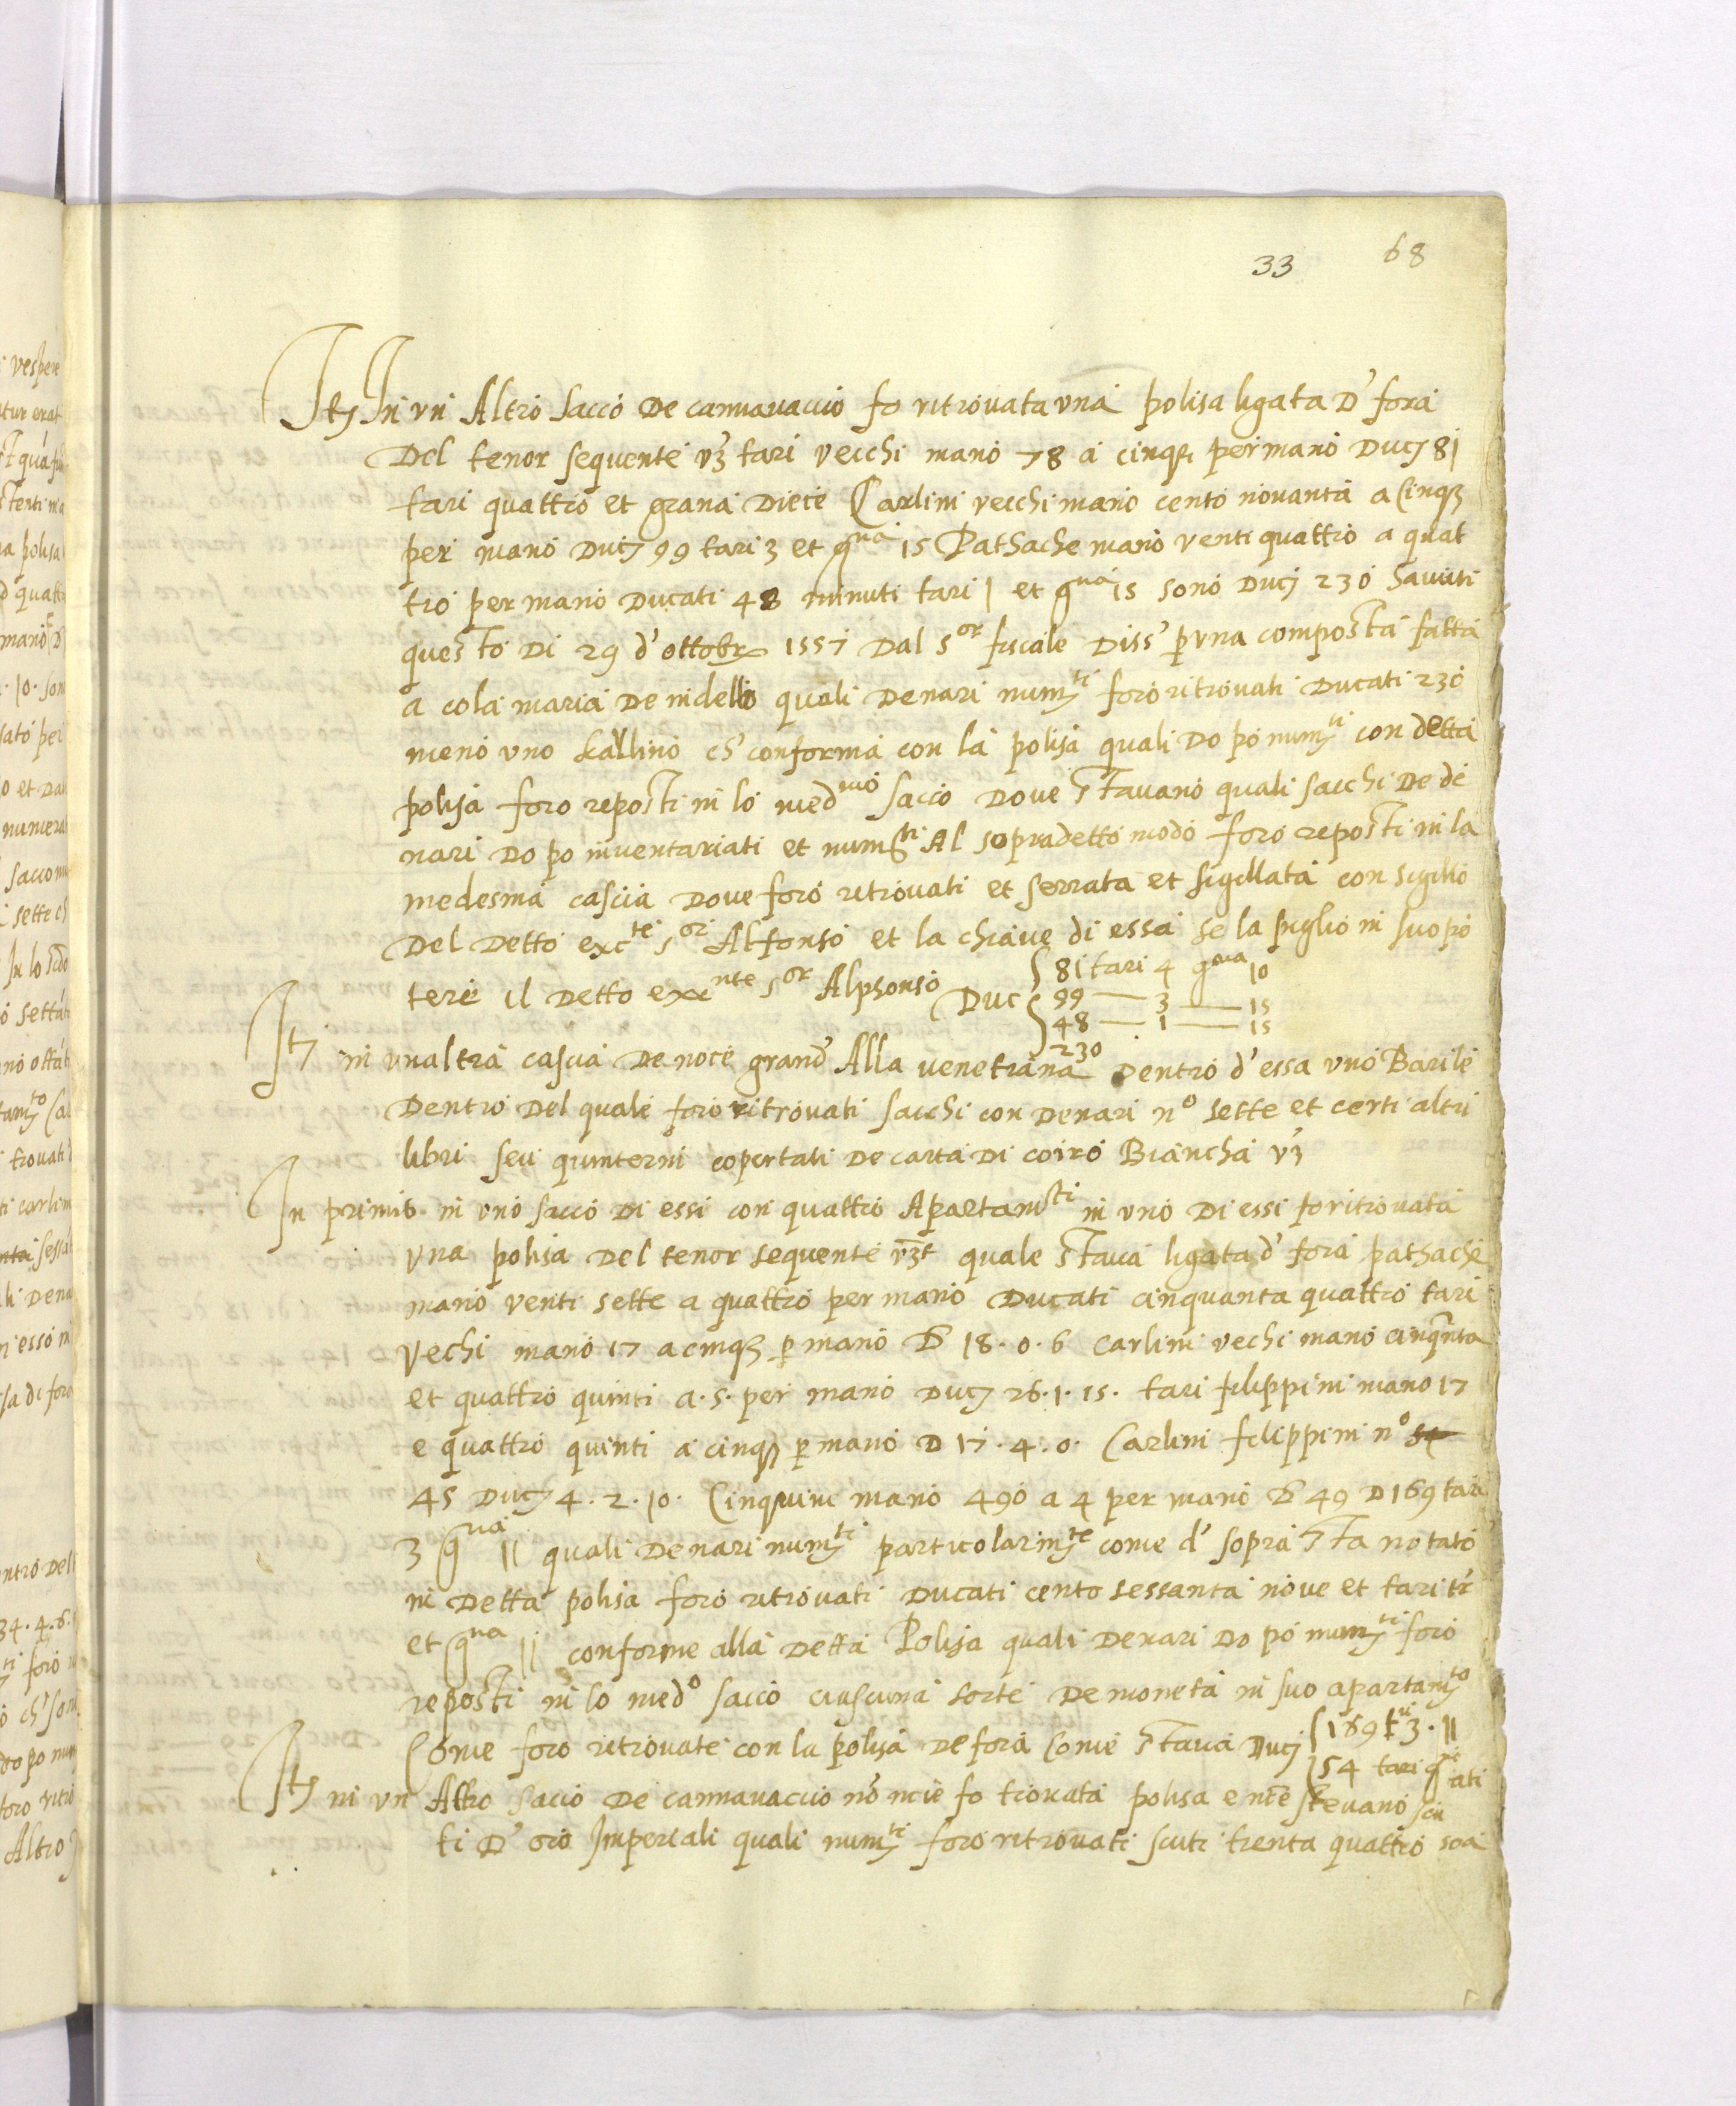 33 68
Itz In un Altro sacco De cannavaccio fo ritrovata una polisa ligata D' fora
Del tenor sequente vz tari vecchi mano 78 a cinque per mano Ducj 81
tari quattro et grana Diece Carlini vecchi mano cento novanta a Cinqz
per mano Ducj 99 tari 3 et gna 15 Pathache mano venti quattro a quat
tro per mano Ducati 48 minuti tari 1 et gna 15 sono Ducj 230 havuti
questo Di 29 d'ottobr 1557 Dal sor fiscale Diss' p una composta fatta
a cola maria De nidello quali Denari numti foro ritrovati Ducati 230
meno uno kallino ch' conforma con la polisa quali Do po numti con detta
polisa foro reposti in lo medmo sacco Dove stavano quali sacchi De de
nari Do po inventariati et numti Al sopradetto modo foro reposti in la
medesma cascia Dove foro ritrovati et serrata et sigillata con sigillo
Del Detto excte sor Alfonso et la chiave di essa se la piglio in suo po
tere il Detto excnte sor Alphonso Duc 81 tari 4 gna 10
99 — 3 — 15
48 — 1 — 15
230
Itz in unaltra cascia De noce grand' Alla venetiana Dentro d'essa uno Barile
Dentro Del quale foro ritrovati sacchi con Denari no sette et certi altri
libri seu quinterni copertati De carta Di coiro Biancha vz
In primis in uno sacco Di essi con quattro Apartamti in uno Di essi fo ritrovata
una polisa Del tenor sequente vzt quale stava ligata d' fora pathache
mano venti sette a quattro per mano Ducati cinquanta quattro tari
vechi mano 17 a cinqz p mano D 18.0.6 Carlini vechi mano cinqnta
et quattro quinti a.5. per mano Ducj 26.1.15. tari filippini mano 17
e quattro quinti a cinqz p mano D 17.4.0. Carlini filippini no 54
45 Ducj 4.2.10. Cinquine mano 490 a 4 per mano D 49 D 169 tari
3 gna 11 quali Denari numti particolarmte come d' sopra sta notato
in Detta polisa foro ritrovati Ducati cento sessanta nove et tari tr'
et gna 11 conforme alla Detta Polisa quali Denari Do po numti foro
reposti in lo medo sacco ciascuna sorte De moneta in suo apartamto
Come foro ritrovate con la polisa De fora Come stava Ducj 169 ti 3.11
54 tari g
Itz in un Altro sacco De cannavaccio no ncie fo trovata polisa e nce stevano scu
ti D' oro Imperiali quali numti foro ritrovati scuti trenta quattro